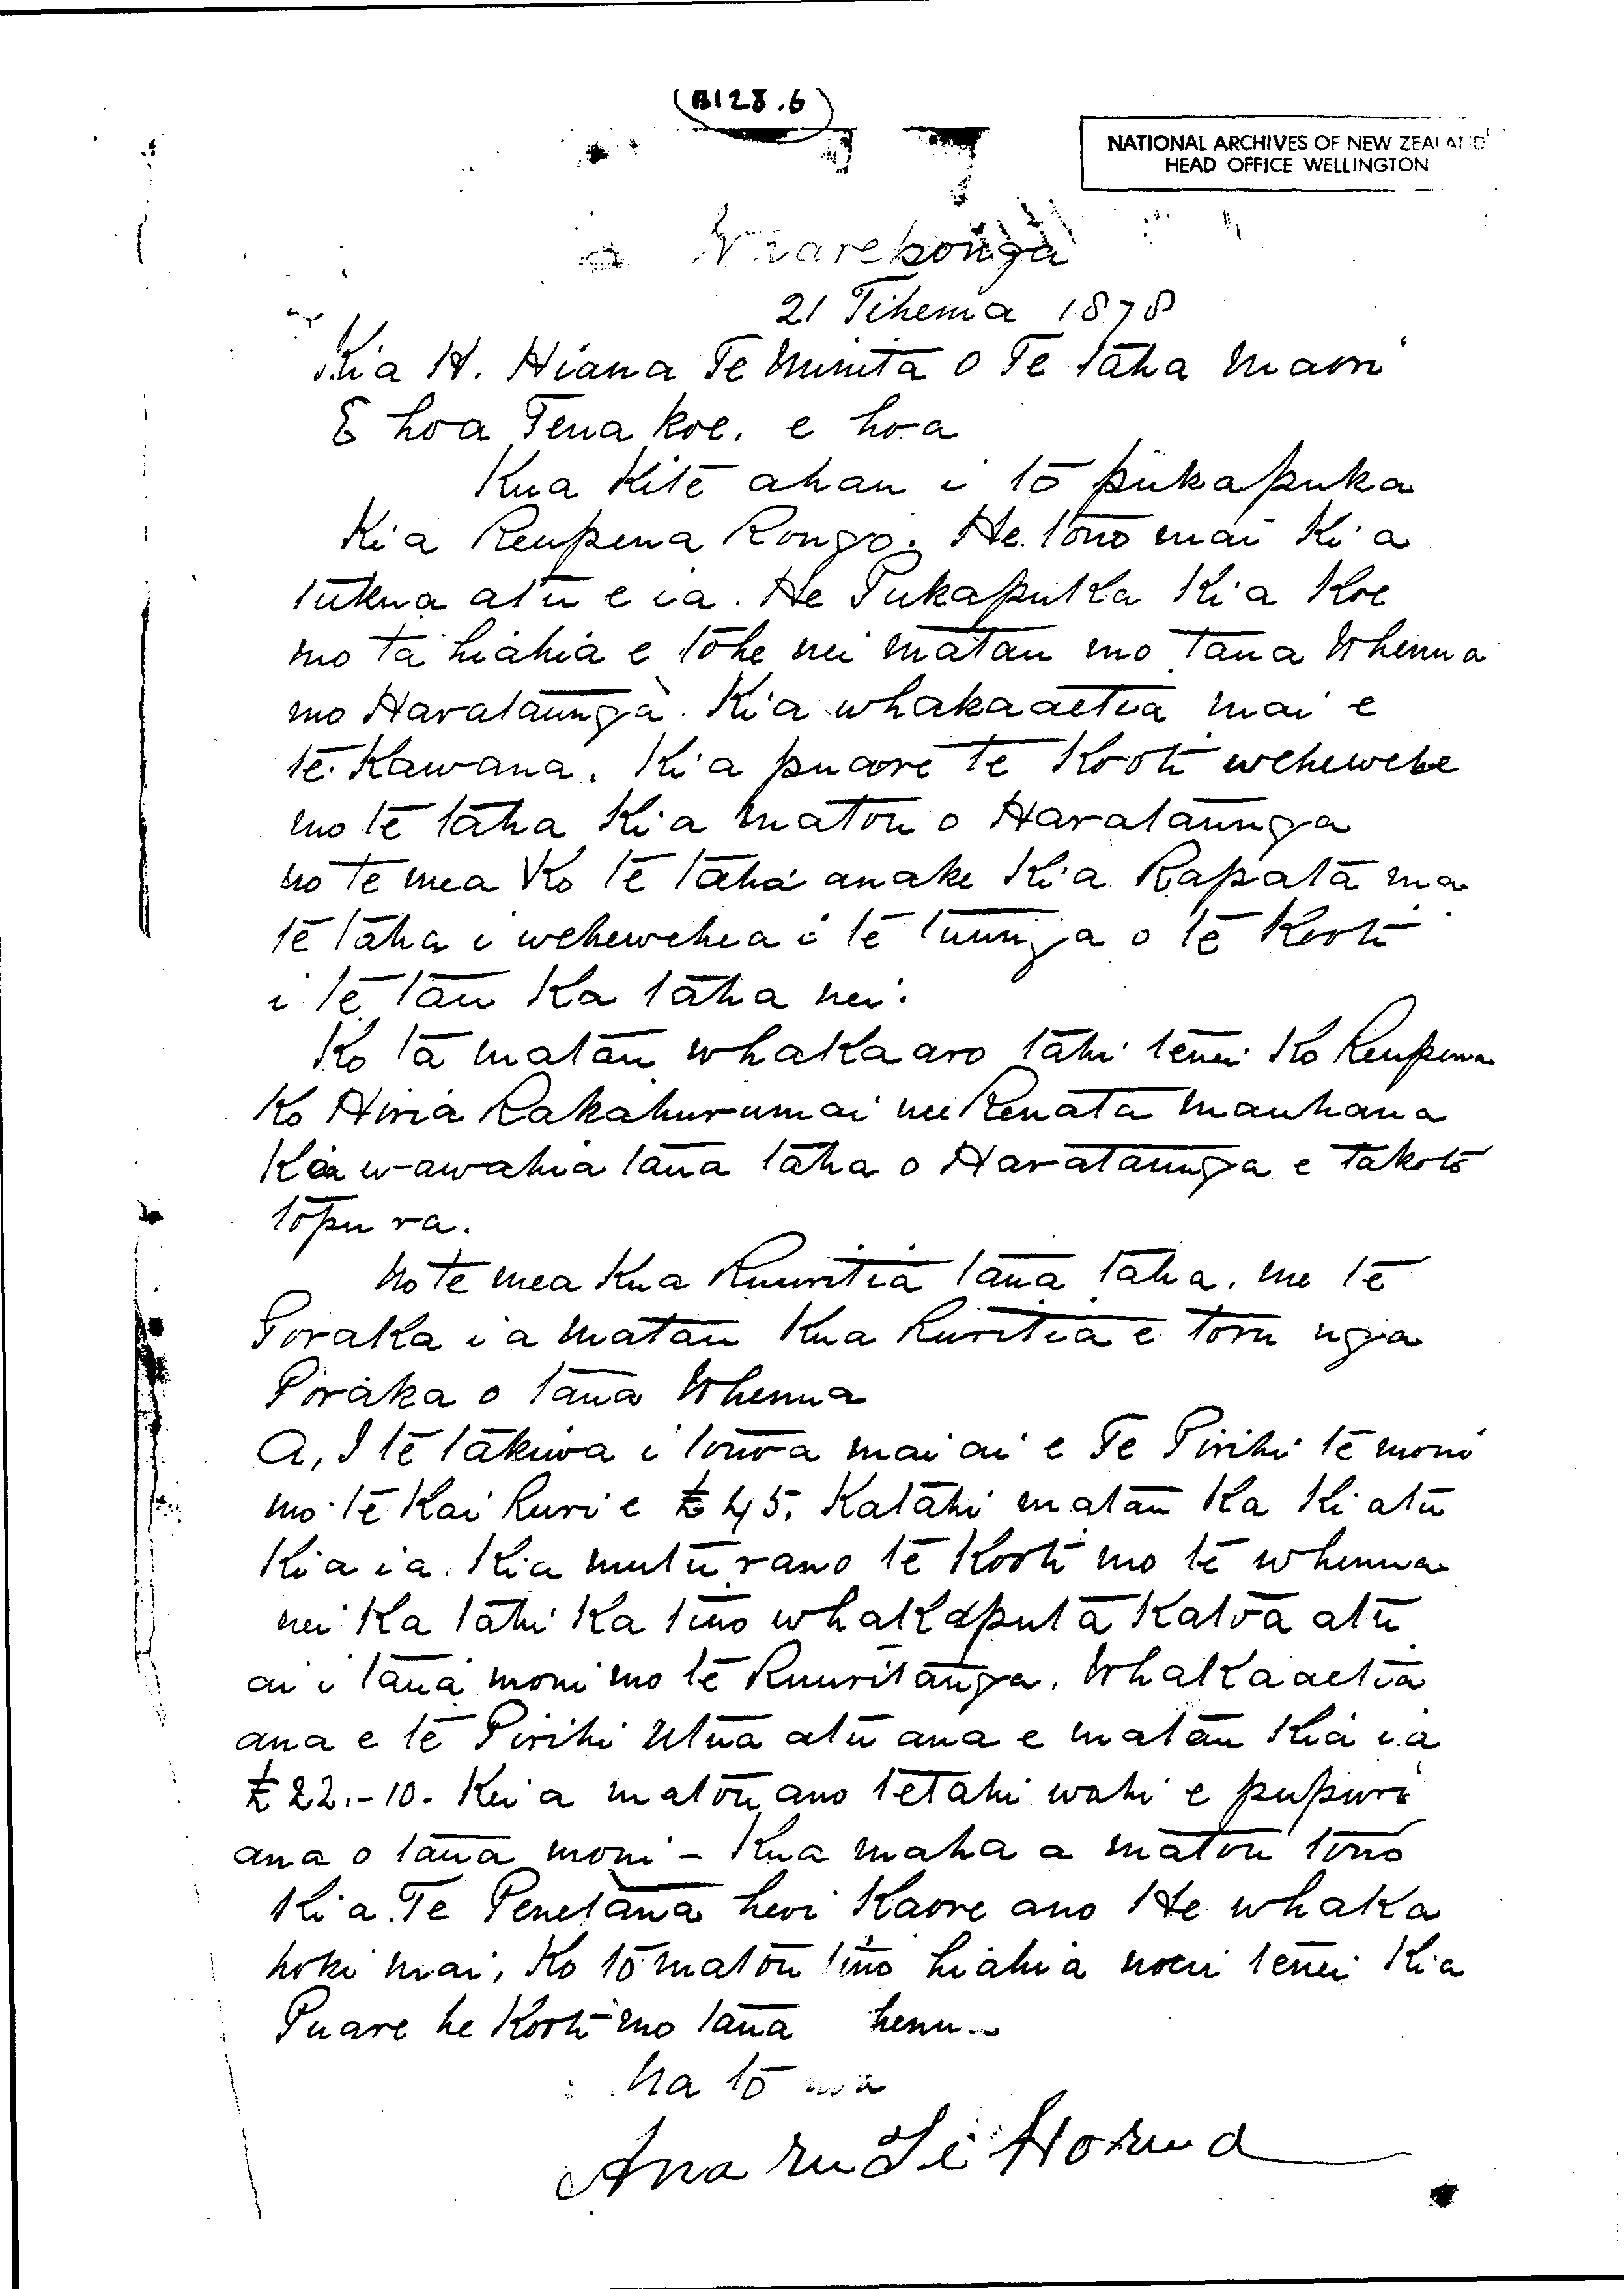 (B128.6)
NATIONAL ARCHIVES OF NEW ZEALAND
HEAD OFFICE WELLINGTON
Wharekonga
21 Tihema 1878
Kia H. Hiana Te Minita o Te taha Maori
E hoa Tena koe. e hoa
Kua Kite ahau i to pukapuka
Kia Reupena Rongo. He tono mai Kia
tukua atu e ia. He Pukapuka Kia Koe
mo ta hiahia e tohe nei matau mo taua Whenua
mo Harataunga. Kia whakaaetia mai e
te Kawana. Kia puare te Kooti wehewehe
mo te taha Kia matou o Harataunga
no te mea Ko te taha anake Kia Rapata ma
te taha i wehewehea i te tuunga o te Kooti
i te tau Ka taha nei.
Ko ta matau whakaaro tahi tenei Ko Reupena
Ko Hiria Rakahurumai nei Renata Mauhana
Kia wawahia taua taha o Harataunga e takoto
topu ra.
No te mea Kua Ruuritia taua taha. me te
Poraka i a matau Kua Ruritia e toru nga
Poraka o taua Whenua
A, I te takiwa i tonoa mai ai e Te Pirihi te moni
mo te Kai Ruri e £45. Katahi matau Ka Ki atu
Kia ia. Kia mutu rano te Kooti mo te whenua
nei Ka tahi Ka tino whakaputa Katoa atu
ai i taua moni mo te Ruuritanga. Whakaaetia
ana e te Pirihi Utua atu ana e matau Kia ia
£22.-10. Kei a matou ano tetahi wahi e pupuri
ana o taua moni - Kua maha a matou tono
Kia Te Penetana heoi Kaore ano He whaka
hoki mai, Ko to matou tino hiahia noeii tenei Kia
Puare he Kooti mo taua henu
Na to hoa
Anaru Te Horua